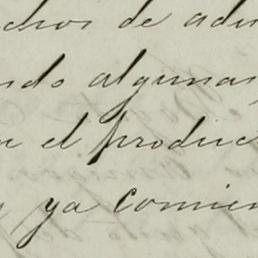 chos de adu
ndo algunas
el produc
y ya comien